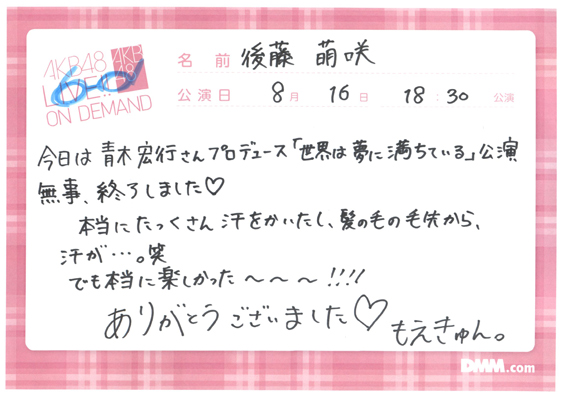 AKB48
LIVE!!
ON DEMAND
AKB
48
名前 後藤 萌咲
公演日 8月 16日 18:30 公演
今日は 青木宏行さんプロデュース「世界は夢に満ちている」公演
無事、終了しました♡
本当にたっくさん 汗をかいたし、髪の毛の毛先から、
汗が…。笑
でも本当に楽しかった〜〜〜!!!!
ありがとうございました♡
もえきゅん。
DMM.com